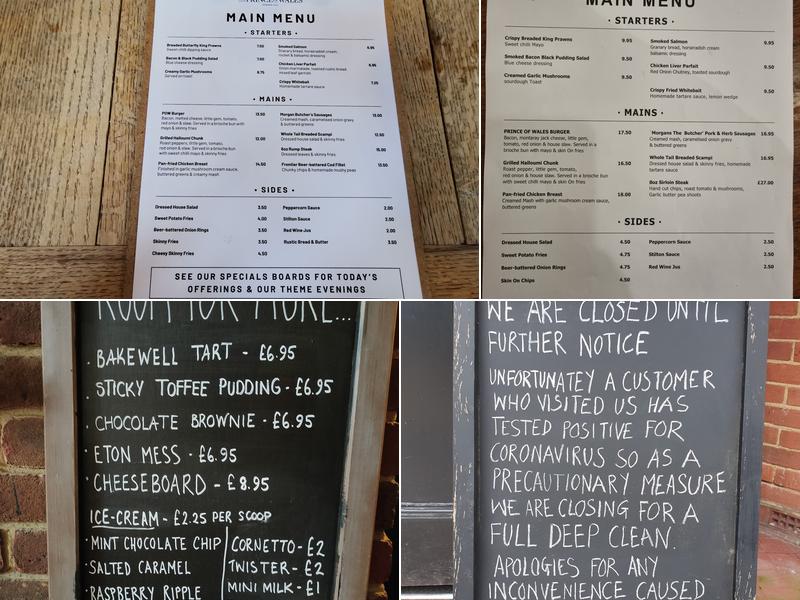 MAIN MENU
• STARTERS •
Breaded Butterfly King Prawns 7.50
Sweet chilli dipping sauce
Bacon & Black Pudding Salad 7.50
Blue cheese dressing
Creamy Garlic Mushrooms 6.75
Smoked Salmon 6.95
Granary bread, horseradish cream,
rocket & balsamic dressing
Chicken Liver Parfait 6.95
Onion marmalade, toasted rustic bread,
mixed leaf garnish
Crispy Whitebait 7.25
Homemade tartare sauce
• MAINS •
POW Burger 13.50
Bacon, melted cheese, little gem, tomato,
red onion & slaw. Served in a brioche bun with
mayo & skinny fries
Grilled Halloumi Chunk 13.00
Roast peppers, little gem, tomato,
red onion & slaw. Served in a brioche bun
with sweet chilli mayo & skinny fries
Pan-fried Chicken Breast 14.50
Finished in garlic mushroom cream sauce,
buttered greens & creamy mash
Morgan Butcher's Sausages 13.00
Creamed mash, caramelised onion gravy
& buttered greens
Whole Tail Breaded Scampi 12.50
Dressed house salad & skinny fries
8oz Rump Steak 15.00
Dressed leaves & skinny fries
Frontier Beer-battered Cod Fillet 13.50
Chunky chips & homemade mushy peas
• SIDES •
Dressed House Salad 3.50
Sweet Potato Fries 4.00
Beer-battered Onion Rings 3.50
Skinny Fries 3.50
Cheesy Skinny Fries 4.50
Peppercorn Sauce 2.00
Stilton Sauce 2.00
Red Wine Jus 2.00
Rustic Bread & Butter 3.50
SEE OUR SPECIALS BOARDS FOR TODAY'S
OFFERINGS & OUR THEME EVENINGS
MAIN MENU
• STARTERS •
Crispy Breaded King Prawns 9.95
Sweet chilli Mayo
Smoked Bacon Black Pudding Salad 9.50
Blue cheese dressing
Creamed Garlic Mushrooms 9.50
sourdough Toast
Smoked Salmon 9.95
Granary bread, horseradish cream
balsamic dressing
Chicken Liver Parfait 9.50
Red Onion Chutney, toasted sourdough
Crispy Fried Whitebait 9.50
Homemade tartare sauce, lemon wedge
• MAINS •
PRINCE OF WALES BURGER 17.50
Bacon, monteray jack cheese, little gem,
tomato, red onion & house slaw. Served in a
brioche bun with mayo & skin On fries
Grilled Halloumi Chunk 16.50
Roast pepper, little gem, tomato,
red onion & house slaw. Served in a brioche bun
with sweet chilli mayo & skin On fries
Pan-fried Chicken Breast 18.00
Creamed Mash with garlic mushroom cream sauce,
buttered greens
Morgans The 'Butcher' Pork & Herb Sausages 16.95
Creamed mash, caramelised onion gravy
& buttered greens
Whole Tail Breaded Scampi 16.95
Dressed house salad & skinny fries, homemade
tartare sauce
8oz Sirloin Steak £27.00
Hand cut chips, roast tomato & mushrooms,
Garlic butter pea shoots
• SIDES •
Dressed House Salad 4.50
Sweet Potato Fries 4.75
Beer-battered Onion Rings 4.75
Skin On Chips 4.50
Peppercorn Sauce 2.50
Stilton Sauce 2.50
Red Wine Jus 2.50
ROOM FOR MORE...
. BAKEWELL TART - £6.95
. STICKY TOFFEE PUDDING - £6.95
. CHOCOLATE BROWNIE - £6.95
• ETON MESS - £6.95
• CHEESEBOARD - £8.95
ICE-CREAM - £2.25 PER SCOOP
• MINT CHOCOLATE CHIP
• SALTED CARAMEL
• RASPBERRY RIPPLE
CORNETTO - £2
TWISTER - £2
MINI MILK - £1
WE ARE CLOSED UNTIL
FURTHER NOTICE
UNFORTUNATEY A CUSTOMER
WHO VISITED US HAS
TESTED POSITIVE FOR
CORONAVIRUS SO AS A
PRECAUTIONARY MEASURE
WE ARE CLOSING FOR A
FULL DEEP CLEAN.
APOLOGIES FOR ANY
INCONVENIENCE CAUSED